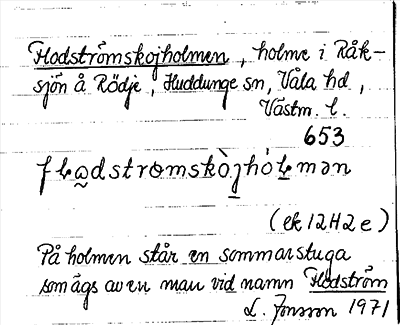 Flodströmskojholmen, holme i Råk-
sjön å Rödje, Huddunge sn, Våla hd,
Västm. l.
653
flo̰dströmskòjhólmən
(ek 12H2e)
På holmen står en sommarstuga
som ägs av en man vid namn Flodström
L. Jonsson 1971